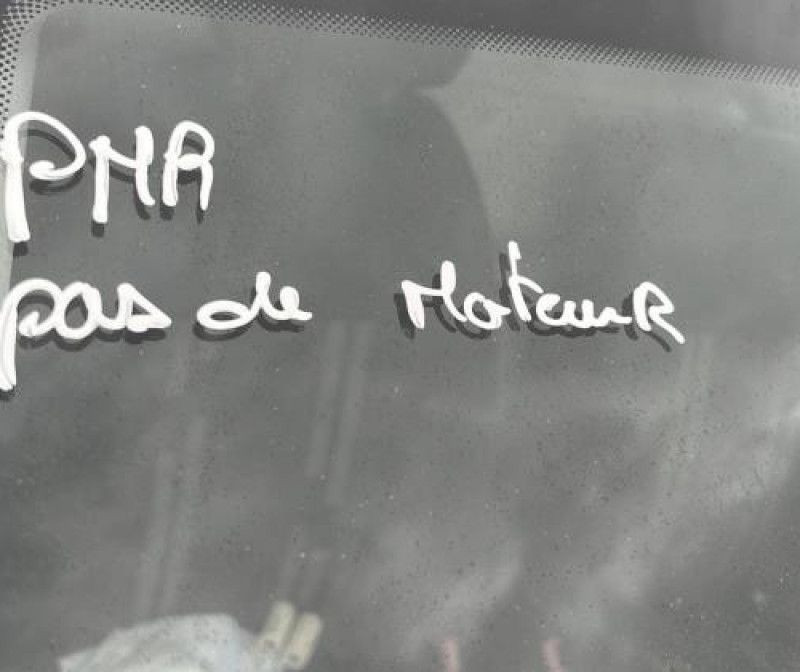 PMR
pas de MoteuR